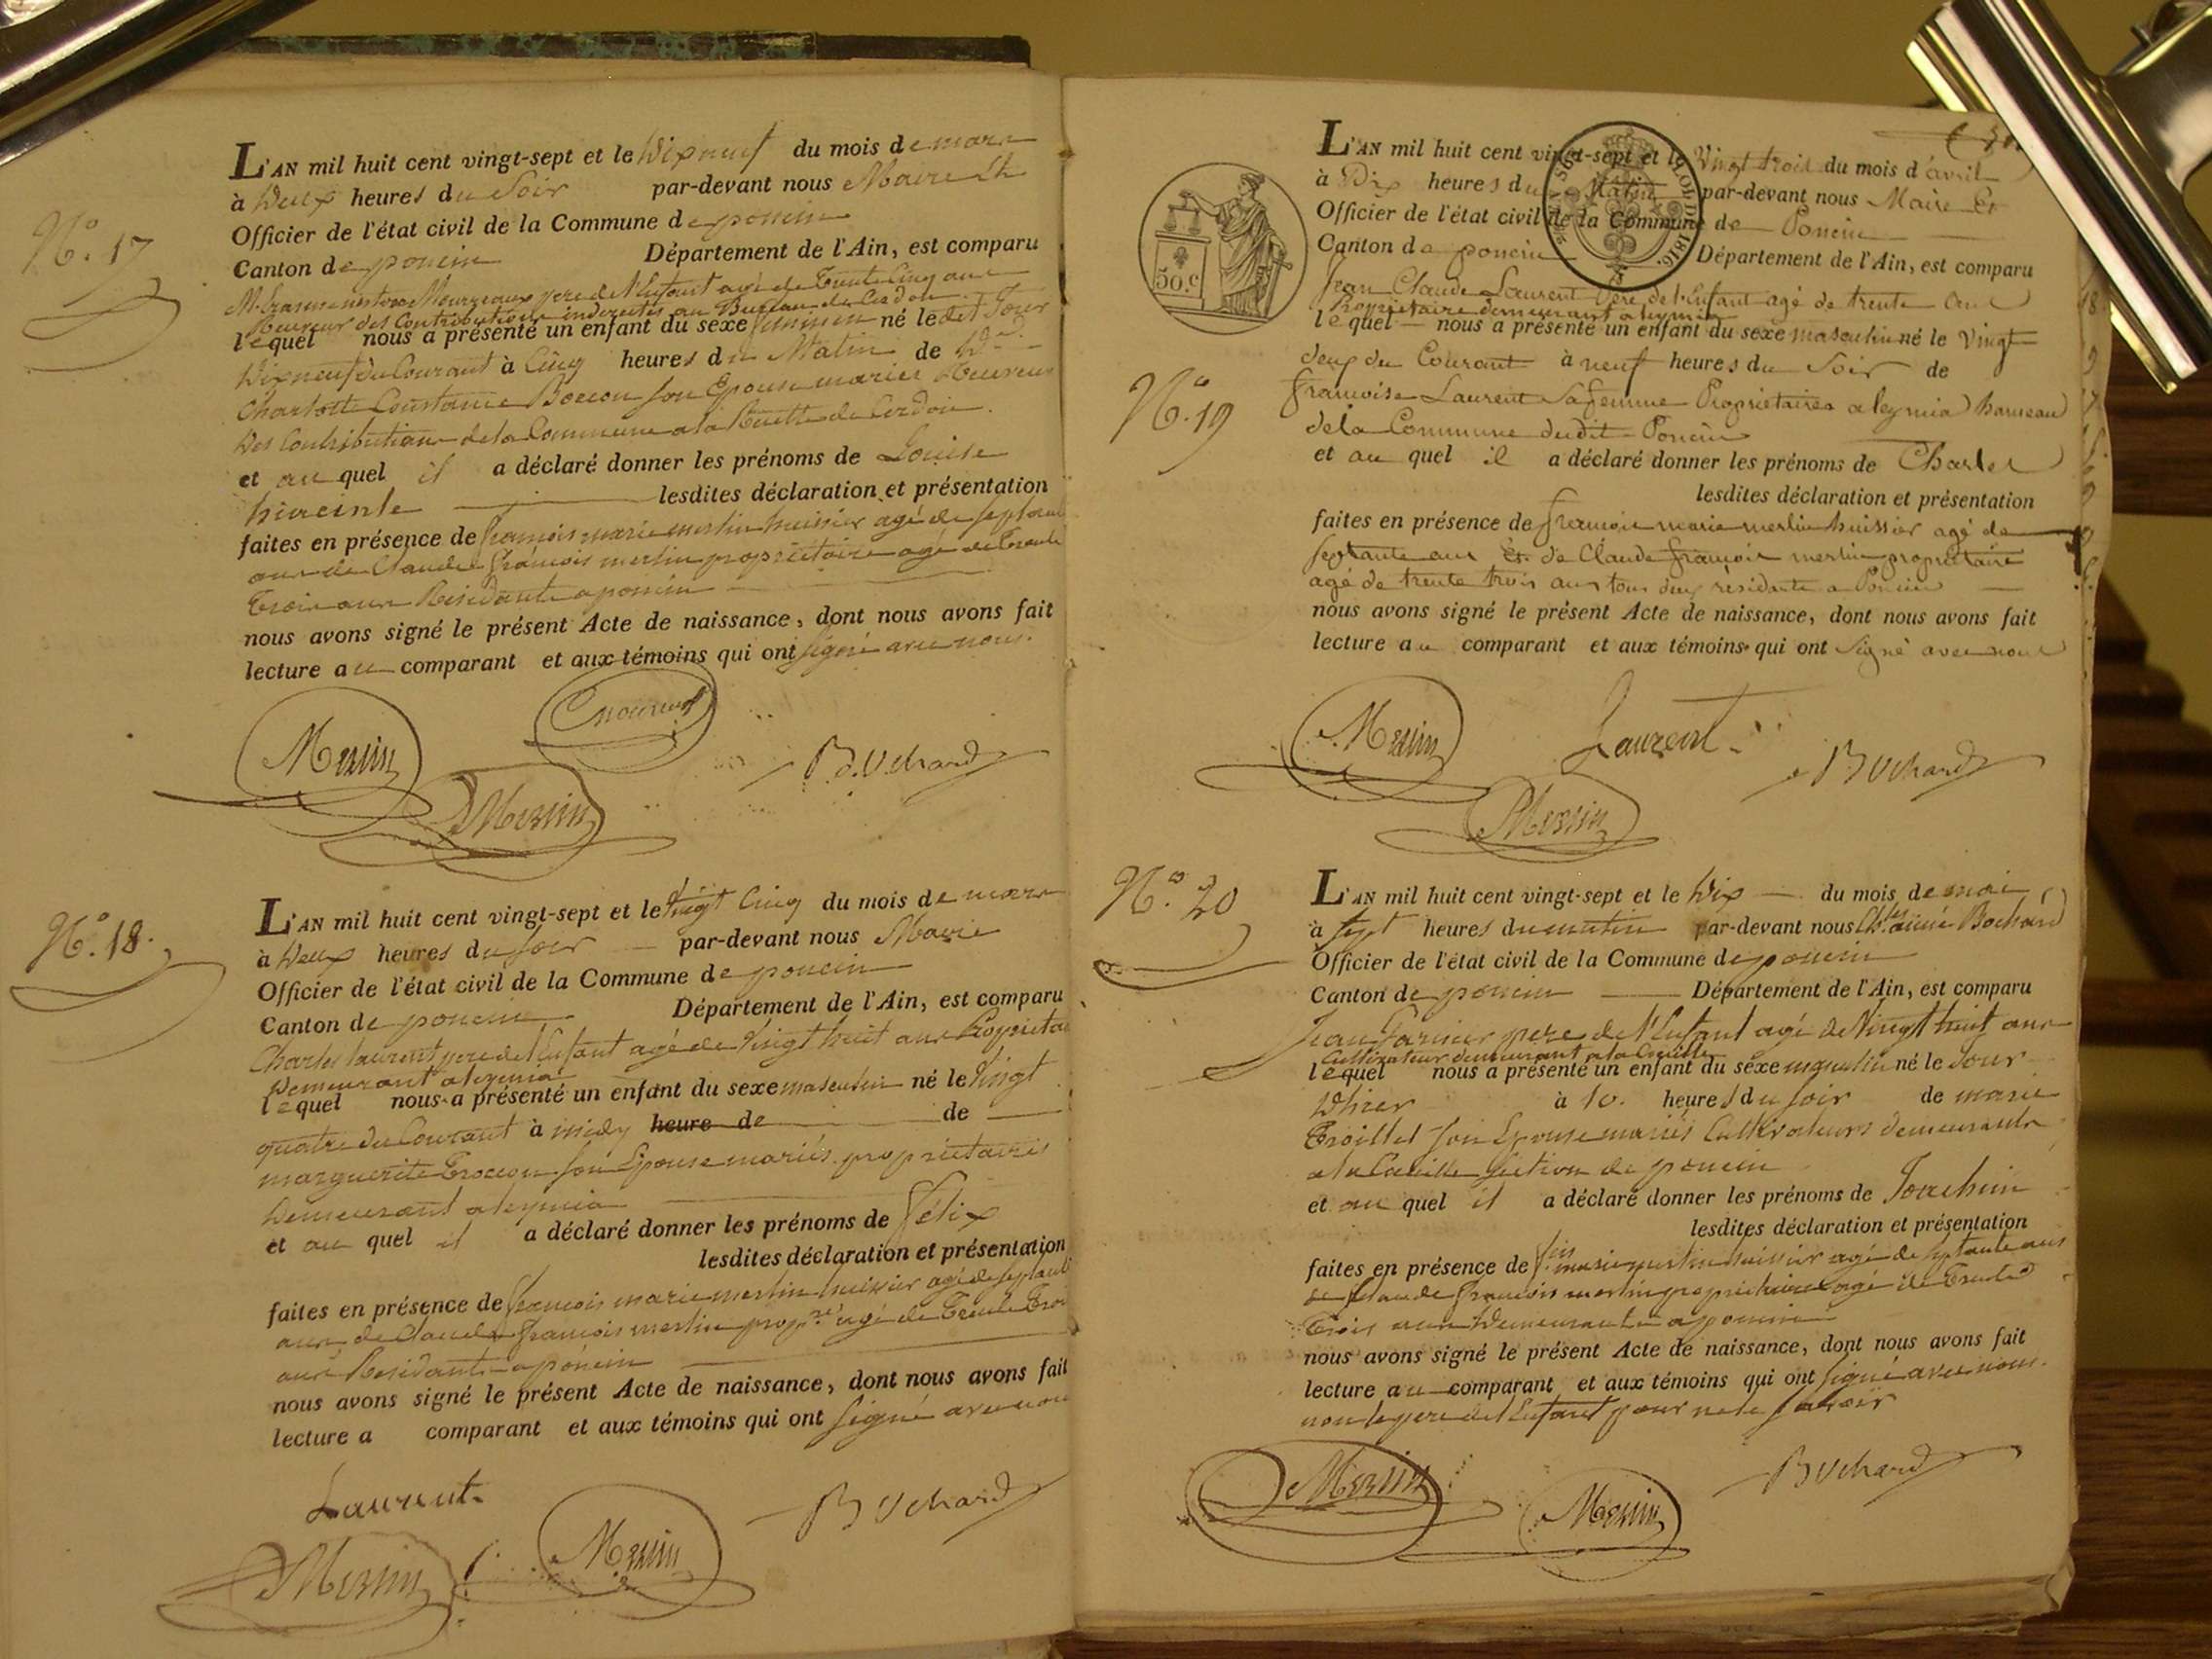 N.° 17
L'AN mil huit cent vingt-sept et le Dixneuf du mois de mars
à Deux heures du Soir par-devant nous Maire Et
Officier de l'état civil de la Commune de poncin
Canton de poncin Département de l'Ain, est comparu
pere de l'Enfant agé de Trente Cinq ans
Receveur des Contributions indirectes au Bureau de Cerdon
lequel nous a présenté un enfant du sexe feminin né le dit Jour
Dixneuf du Courant à Cinq heures du Matin de D.
Charlotte Constance Boccon son Epouse mariés Receveur
Des Contributions de la Commune a la Recette de Cerdon.
et au quel il a déclaré donner les prénoms de Louise
hiacinte lesdites déclaration et présentation
faites en présence de françois marie merlin huissier agé de septante
ans de Claude françois merlin proprietaire agé de Trente
Trois ans Residants a poncin
nous avons signé le présent Acte de naissance, dont nous avons fait
lecture au comparant et aux témoins qui ont signé avec nous.
Merlin
Bochard
Merlin
N.° 18.
L'AN mil huit cent vingt-sept et le Vingt Cinq du mois de mars
à Deux heures du soir par-devant nous Maire
Officier de l'état civil de la Commune de poncin
Canton de poncin Département de l'Ain, est comparu
Charles laurent pere de l'Enfant agé de Vingt huit ans Proprieta
Demeurant a leymia
lequel nous a présenté un enfant du sexe masculin né le Vingt
quatre du Courant à midy heure de de
marguerite Trocon son Epouse mariés proprietaires
Demeurant a leymia
et au quel il a déclaré donner les prénoms de félix
lesdites déclaration et présentation
faites en présence de françois marie merlin huissier agé de septante
ans de Claude françois merlin prop.re agé de Trente Trois
ans Residants a poncin
nous avons signé le présent Acte de naissance, dont nous avons fait
lecture a comparant et aux témoins qui ont signé avec nous
Laurent
Bochard
Merlin
Merlin
50.c
L'AN mil huit cent vingt-sept et le Vingt trois du mois d'avril
à Dix heures du Matin par-devant nous Maire Et
Officier de l'état civil de la Commune de Poncin
Canton de poncin Département de l'Ain, est comparu
Jean Claude Laurent Père de l'Enfant agé de trente ans
Proprietaire demeurant a leymia
lequel nous a présenté un enfant du sexe masculin né le Vingt
deux du Courant à neuf heures du Soir de
N.° 19
françoise Laurent Sa femme Proprietaires a leymia hameau
de la Commune dudit Poncin
et au quel il a déclaré donner les prénoms de Charles
lesdites déclaration et présentation
faites en présence de françois marie merlin huissier agé de
septante ans Et de Claude françois merlin proprietaire
agé de trente trois ans tous deux résidants a Poncin
nous avons signé le présent Acte de naissance, dont nous avons fait
lecture au comparant et aux témoins qui ont signé avec nous
Merlin
Laurent
Bochard
Merlin
N.° 20
L'AN mil huit cent vingt-sept et le Dix du mois de mai
à sept heures du matin par-devant nous Ch.les aimé Bochard
Officier de l'état civil de la Commune de poncin
Canton de poncin Département de l'Ain, est comparu
Jean pere de l'Enfant agé de Vingt huit ans
Cultivateur demeurant a la Cueille
lequel nous a présenté un enfant du sexe masculin né le Jour
D'hier à 10. heures du soir de marie
Troillet son Epouse mariés Cultivateurs demeurants
a la Cueille section de poncin
et au quel il a déclaré donner les prénoms de Joachim
lesdites déclaration et présentation
faites en présence de f.çois marie merlin huissier agé de septante ans
de Claude françois merlin proprietaire agé de Trente
Trois ans Demeurants a poncin
nous avons signé le présent Acte de naissance, dont nous avons fait
lecture au comparant et aux témoins qui ont signé avec nous.
non le pere de l'Enfant pour ne le savoir
Merlin
Bochard
Merlin